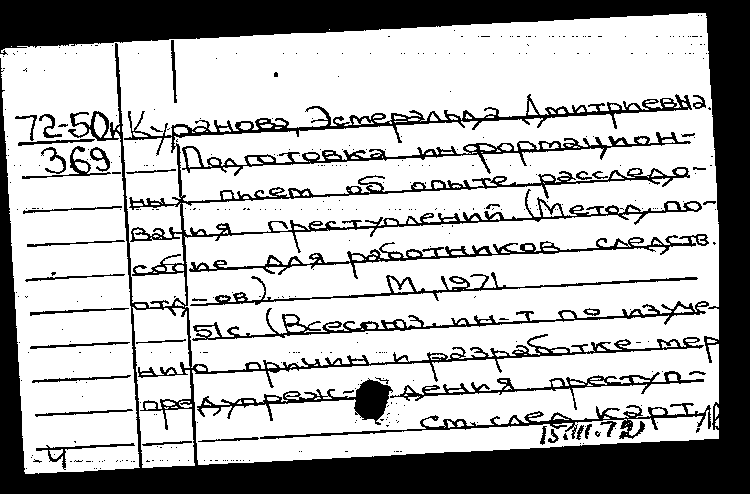 72-50к Куранова, Эсмеральда Дмитриевна.
369 Подготовка информацион-
ных писем об опыте расследо-
вания преступлений. (Метод. по-
собие для работников следств.
отд-ов). М., 1971.
51 с. (Всесоюз. ин-т по изуче-
нию причин и разработке мер
предупреж- дения преступ-
см. след. карт.
15.III.72)